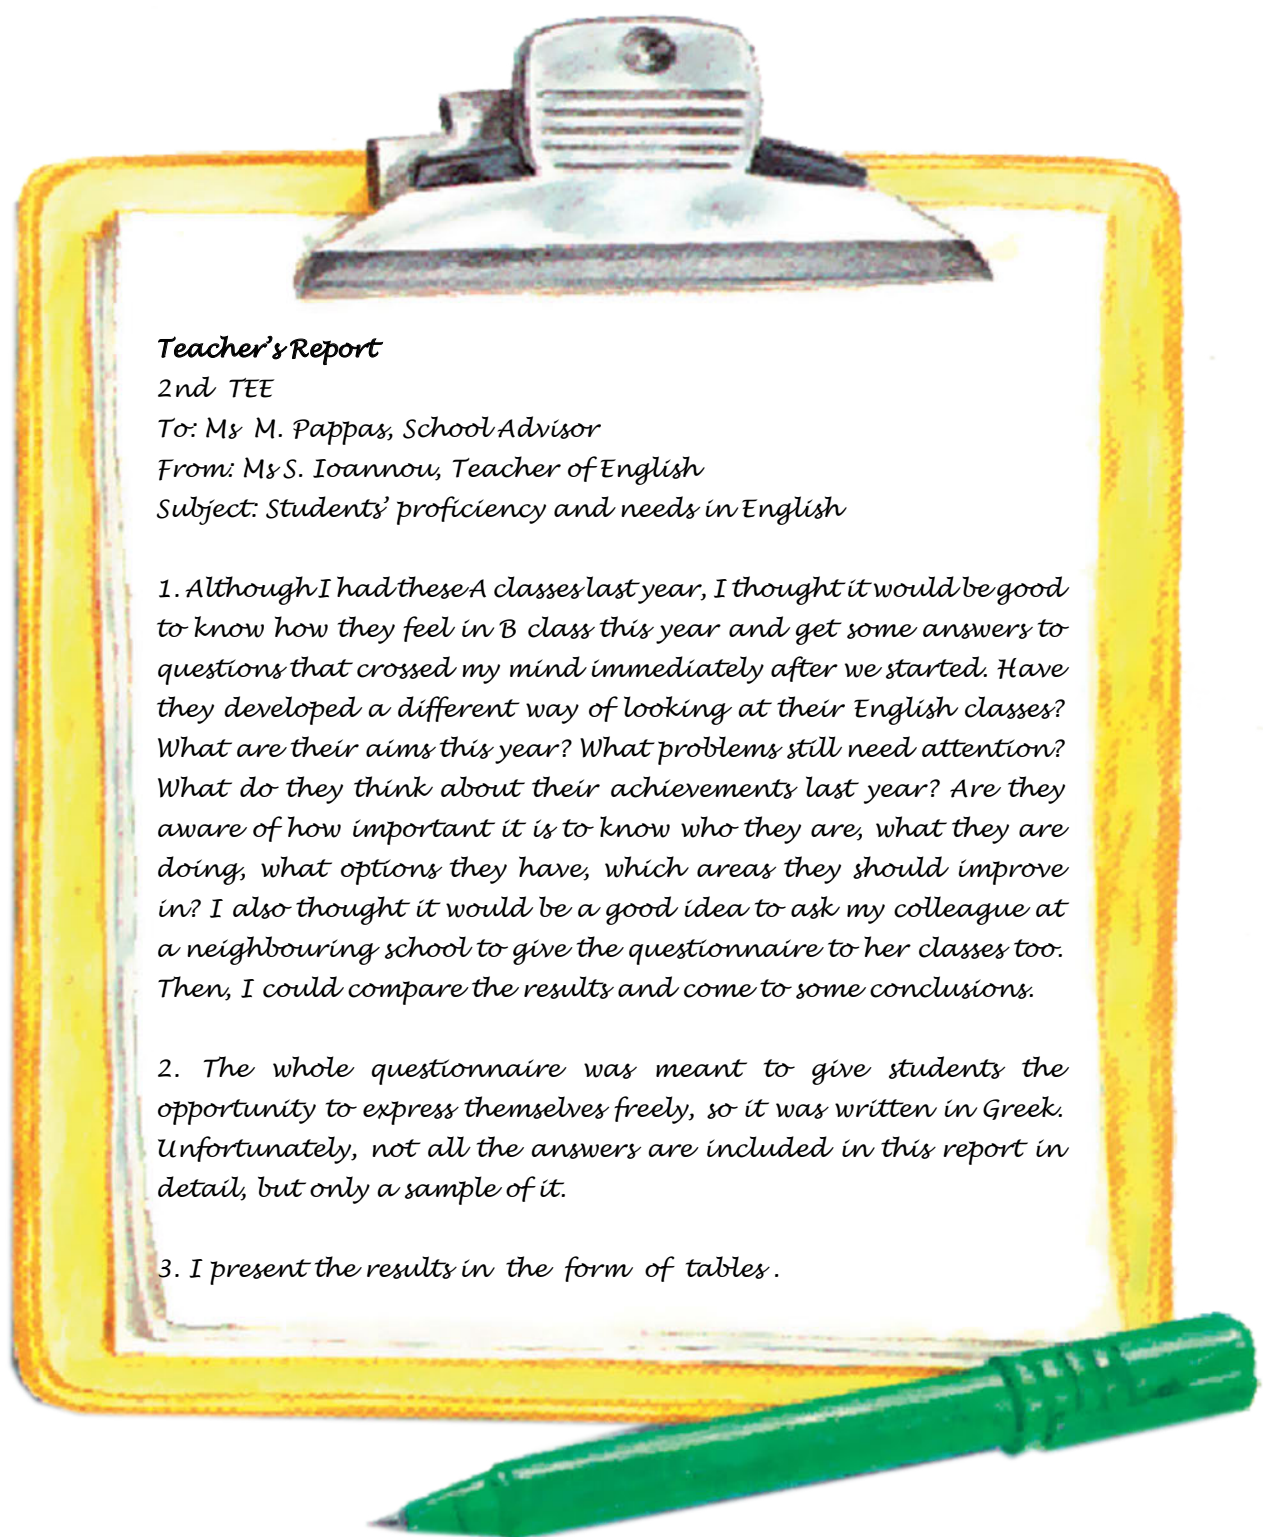 Teacher's Report
2nd TEE
To: Ms M. Pappas, School Advisor
From: Ms S. Ioannou, Teacher of English
Subject: Students' proficiency and needs in English
1. Although I had these A classes last year, I thought it would be good
to know how they feel in B class this year and get some answers to
questions that crossed my mind immediately after we started. Have
they developed a different way of looking at their English classes?
What are their aims this year? What problems still need attention?
What do they think about their achievements last year? Are they
aware of how important it is to know who they are, what they are
doing, what options they have, which areas they should improve
in? I also thought it would be a good idea to ask my colleague at
a neighbouring school to give the questionnaire to her classes too.
Then, I could compare the results and come to some conclusions.
2. The whole questionnaire was meant to give students the
opportunity to express themselves freely, so it was written in Greek.
Unfortunately, not all the answers are included in this report in
detail, but only a sample of it.
3. I present the results in the form of tables .